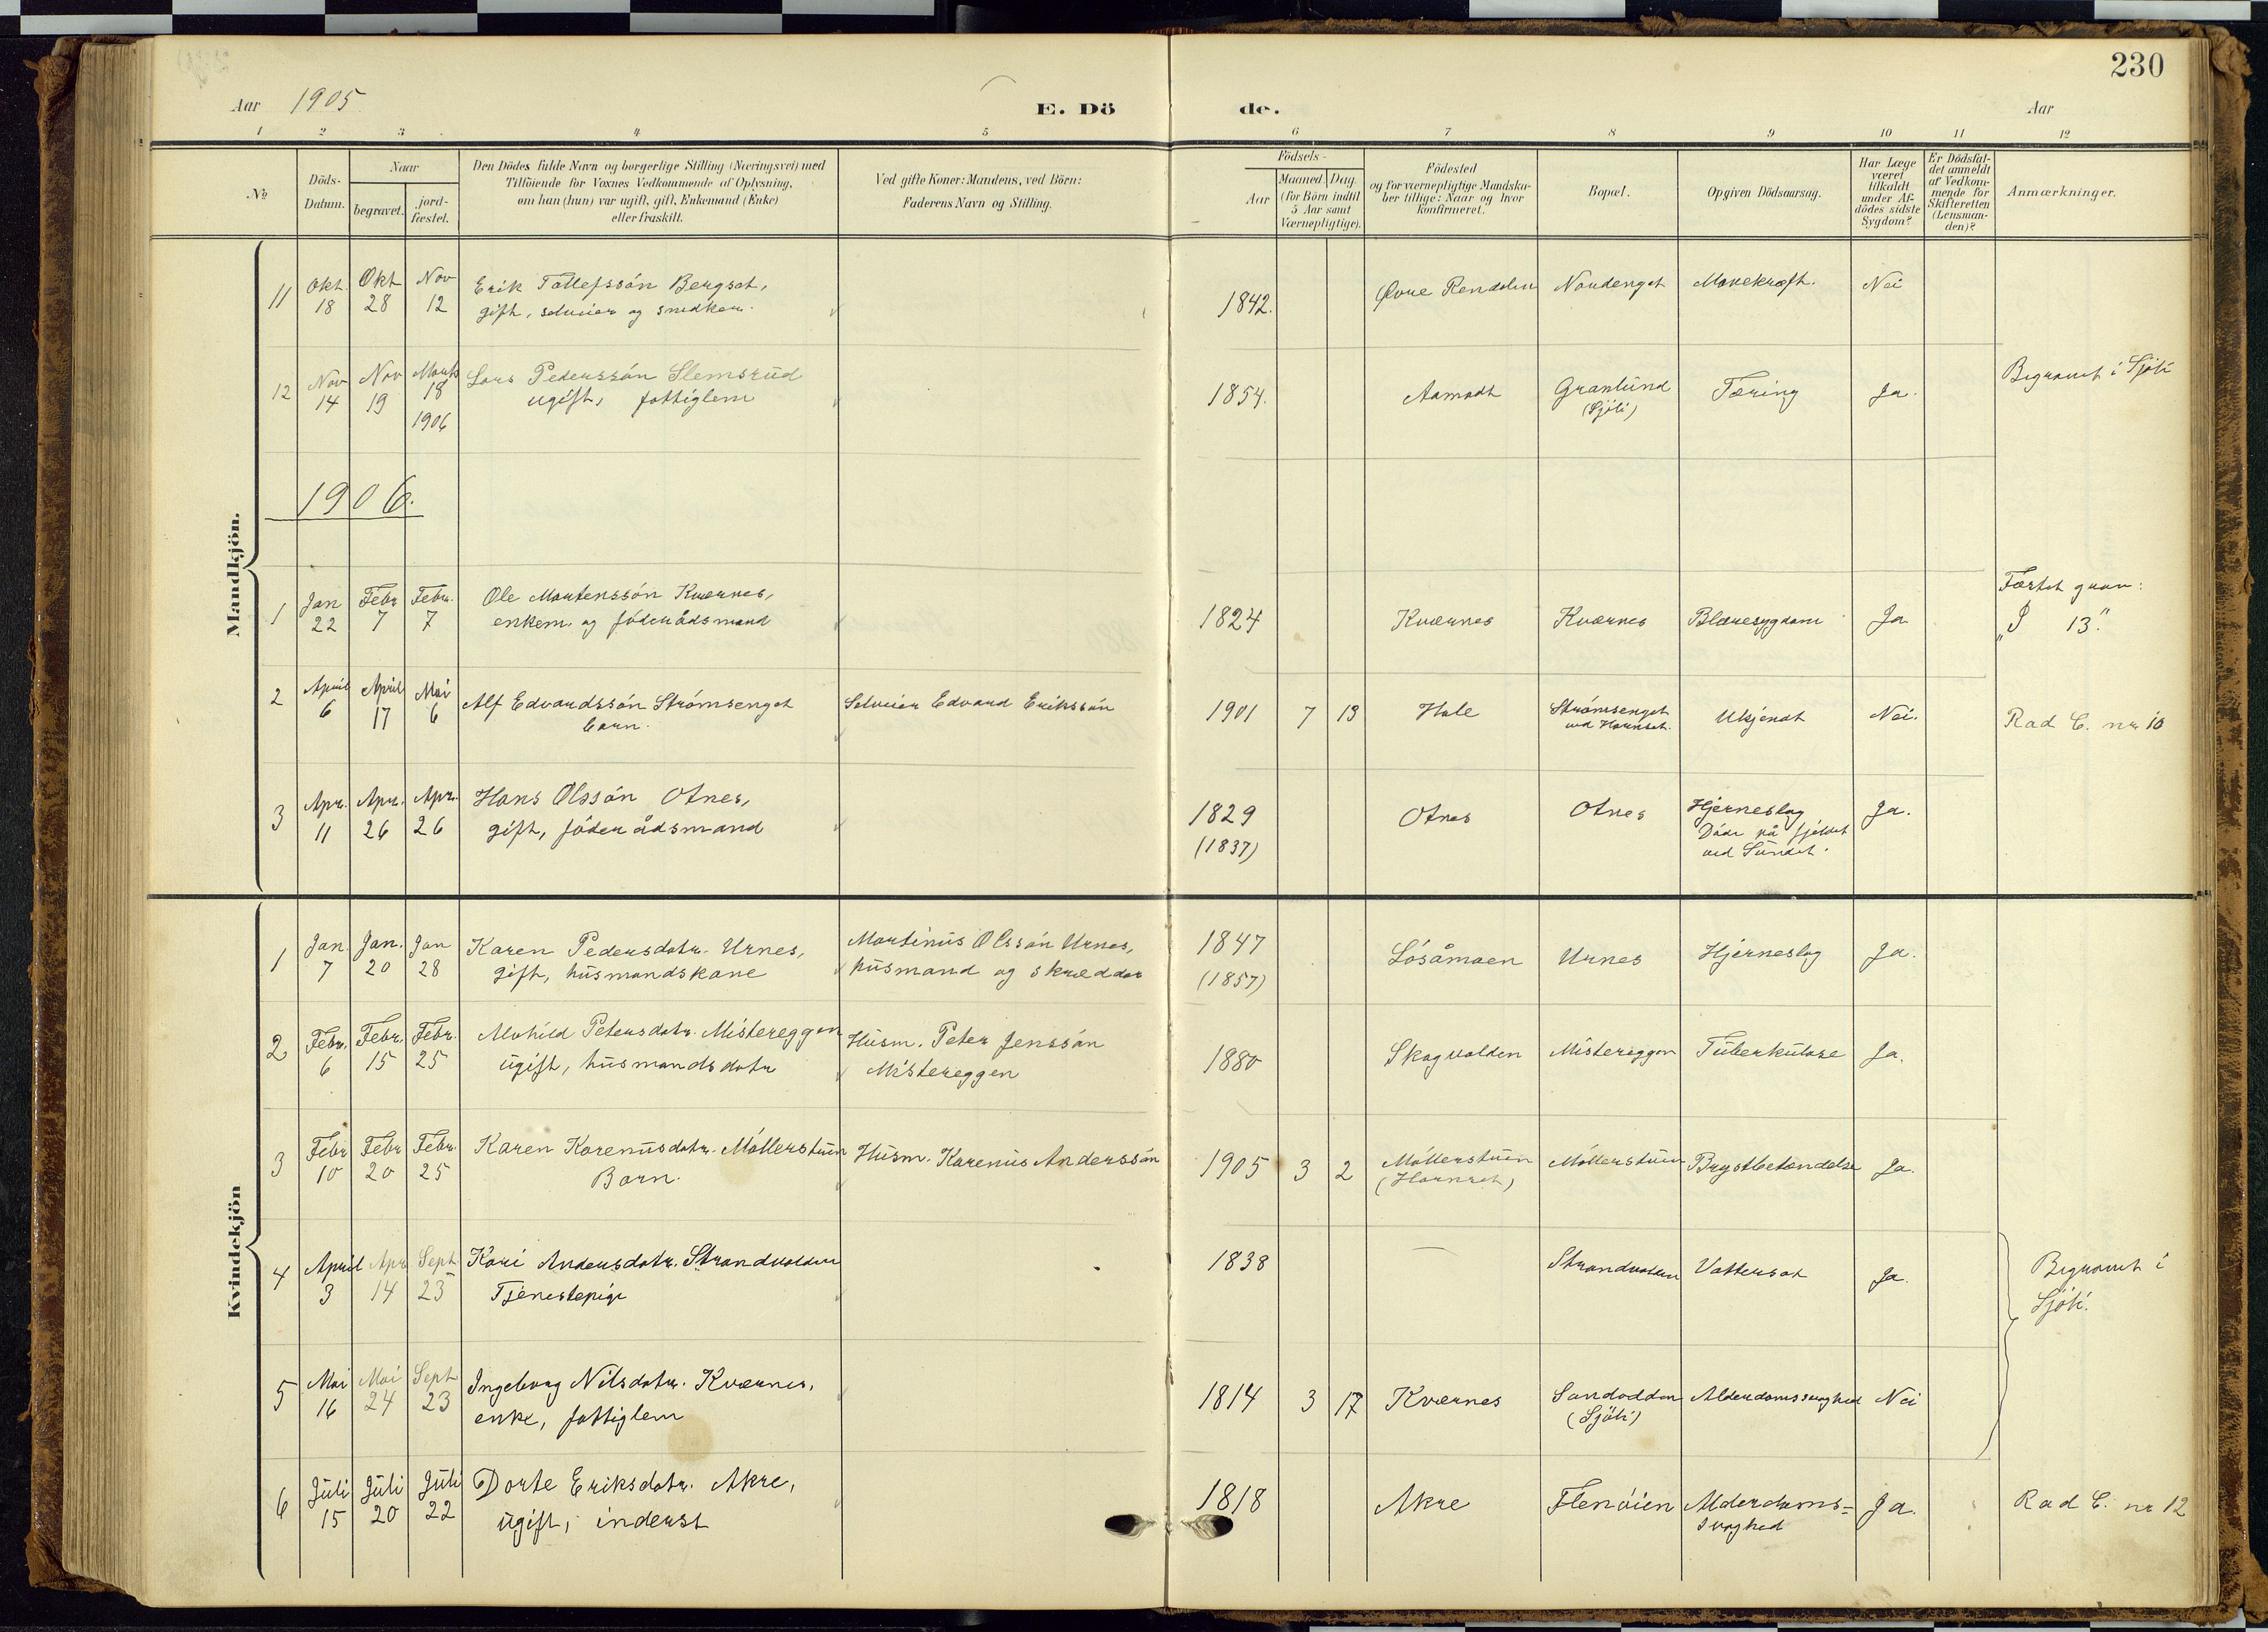 230
Aar 1905
E. Dö
de.
Aar
1 2 3 4 5 6 7 8 9 10 11 12
No
Döds-
Datum.
Naar
begravet.
jord-
fæstet.
Den Dödes fulde Navn og borgerlige Stilling (Næringsvei) med
Tilföiende for Voxnes Vedkommende af Oplysning,
om han (hun) var ugift, gift, Enkemand (Enke)
eller fraskilt.
Ved gifte Koner: Mandens, ved Börn:
Faderens Navn og Stilling.
Födsels-
Aar
Maaned. Dag.
(for Börn indtil
5 Aar samt
Værnepligtige).
Födested
og for værnepligtige Mandska-
ber tillige: Naar og hvor
konfirmeret.
Bopæl.
Opgiven Dödsaarsag.
Har Læge
været
tilkaldt
under Af-
dödes sidste
Sygdom?
Er Dödsfal-
det anmeldt
af Vedkom-
mende for
Skifteretten
(Lensman-
den)?
Anmærkninger.
Mandkjön.
11 Okt. Okt Nov Erik Tollefssón Bergset, 1842. Øvre Rendalen Nordenget Marekræft. Nei
18 28 12 gift, selveier og snedker.
12 Nov Nov Marts Lars Pederssón Slemsrud 1854. Aamodt Granlund Tæring Ja. Begravet i Sjöli
14 19 18 ugift, fattiglem (Sjöli)
1906
1906.
1 Jan Febr Febr. Ole Martenssón Kværnes, 1824 Kværnes Kværnes Blæresygdom Ja Færtet grav:
22 7 7 enkem. og föderådsmand 13."
2 April April Mai Alf Edvardssón Strómsenget Selveier Edvard Erikssón 1901 7 13 Hole Strómsenget Ukjendt Nei. Rad C. nr. 10
6 17 6 barn. ved Hornset.
3 Apr. Apr. Apr. Hans Olssón Otnes, 1829 Otnes Otnes Hjerneslag Ja.
11 26 26 gift, föderådsmand (1837) Döde på fjeldet
ved Sundet.
Kvindekjön
1 Jan. Jan. Jan Karen Pedersdatr. Urnes, Martinus Olssón Urnes, 1847 Lósåmoen Urnes Hjerneslag Ja.
7 20 28 gift, husmandskone husmand og skrædder (1857)
2 Febr. Febr. Febr. Alvhild Petersdatr. Mistereggen Husm. Peter Jenssón 1880 Skogvolden Mistereggen Tuberkulose Ja.
6 15 25 ugift, husmandsdatr Mistereggen
3 Febr Febr Febr. Karen Karenusdatr. Móllerstuen Husm. Karenus Anderssón 1905 3 2 Móllerstuen Móllerstuen Brystbetændelse Ja.
10 20 25 Barn. (Hornset)
4 April Apr Sept Kari Andersdatr. Strandvolden 1838 — Strandvolden Vattersot Ja. Begravet i
3 14 23 Tjenestepige Sjöli.
5 Mai Mai Sept Ingeborg Nilsdatr. Kværnes, 1814 3 17 Kværnes Sandodden Alderdomssvaghed Nei
16 24 23 enke, fattiglem (Sjöli)
6 Juli Juli Juli Dorte Eriksdatr. Akre, 1818 Akre Flenóien Alderdoms- Ja. Rad C. nr 12
15 20 22 ugift, inderst svaghed